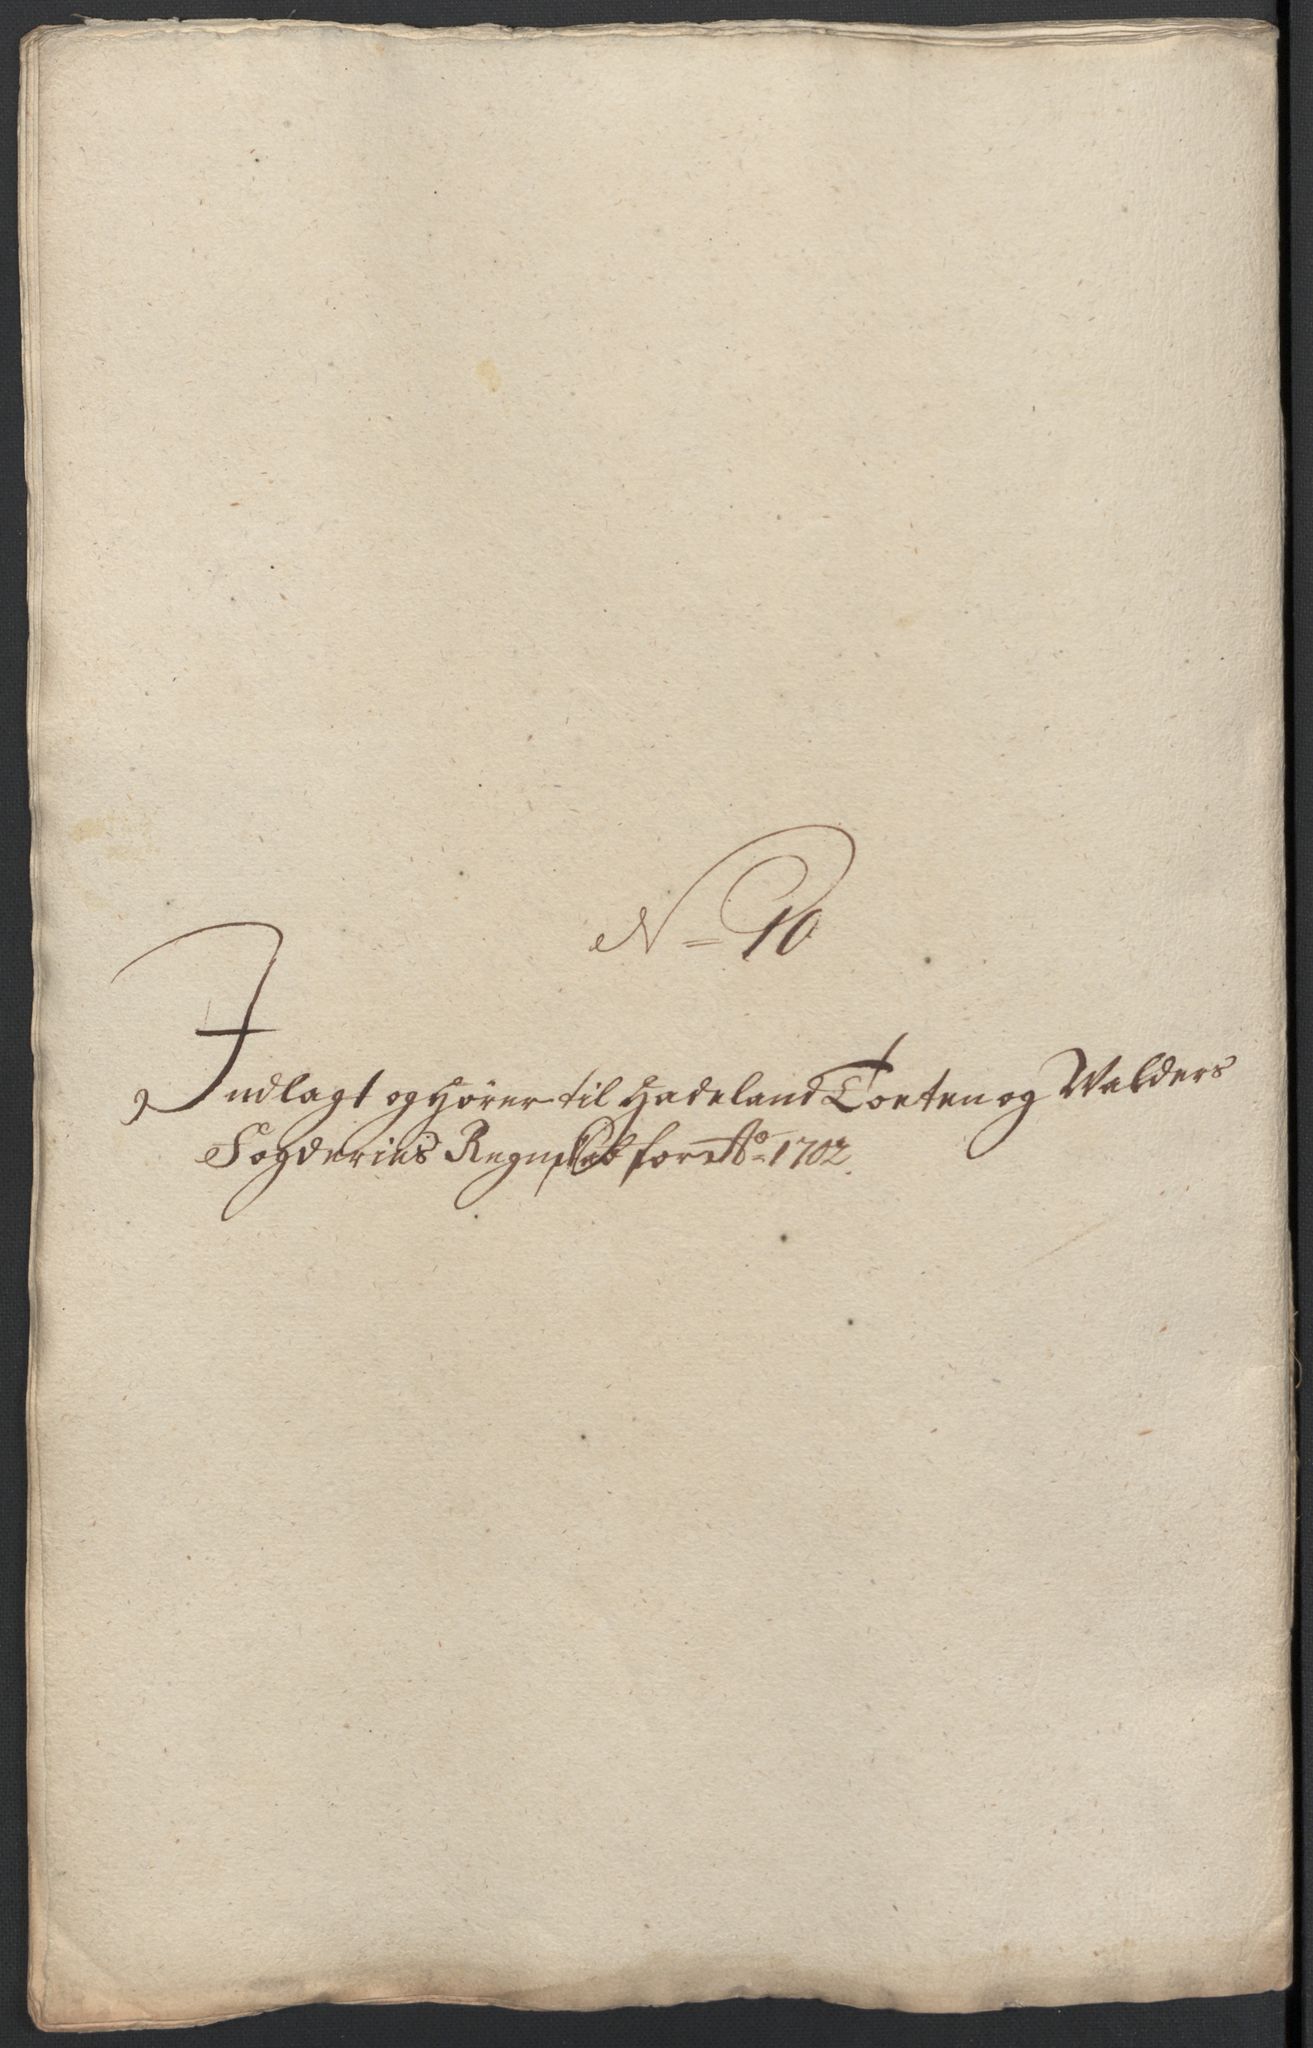 N = 10
Indlagt og hører til Hadeland Toeten og Valders
Fogderies Regnskab for Ao 1702.